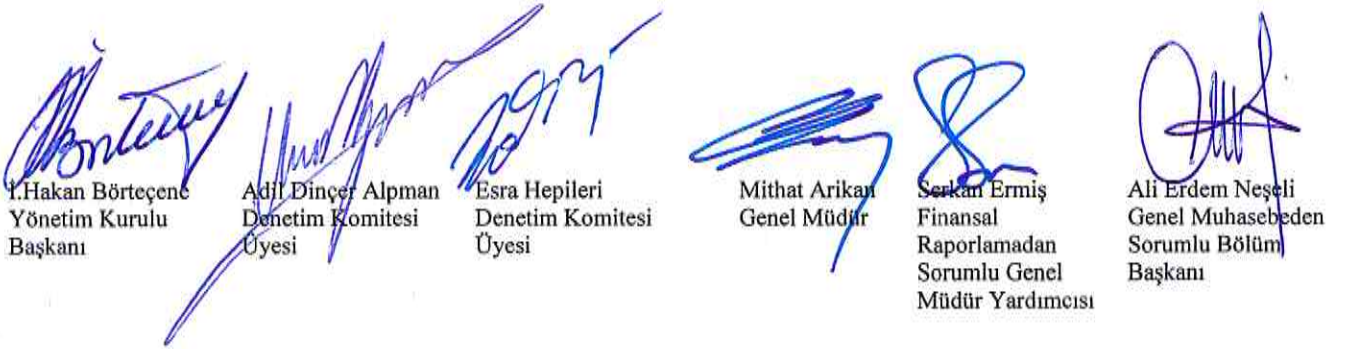 İ.Hakan Börteçene
Yönetim Kurulu
Başkanı
Adil Dinçer Alpman
Denetim Komitesi
Üyesi
Esra Hepileri
Denetim Komitesi
Üyesi
Mithat Arikan
Genel Müdür
Serkan Ermiş
Finansal
Raporlamadan
Sorumlu Genel
Müdür Yardımcısı
Ali Erdem Neşeli
Genel Muhasebeden
Sorumlu Bölüm
Başkanı